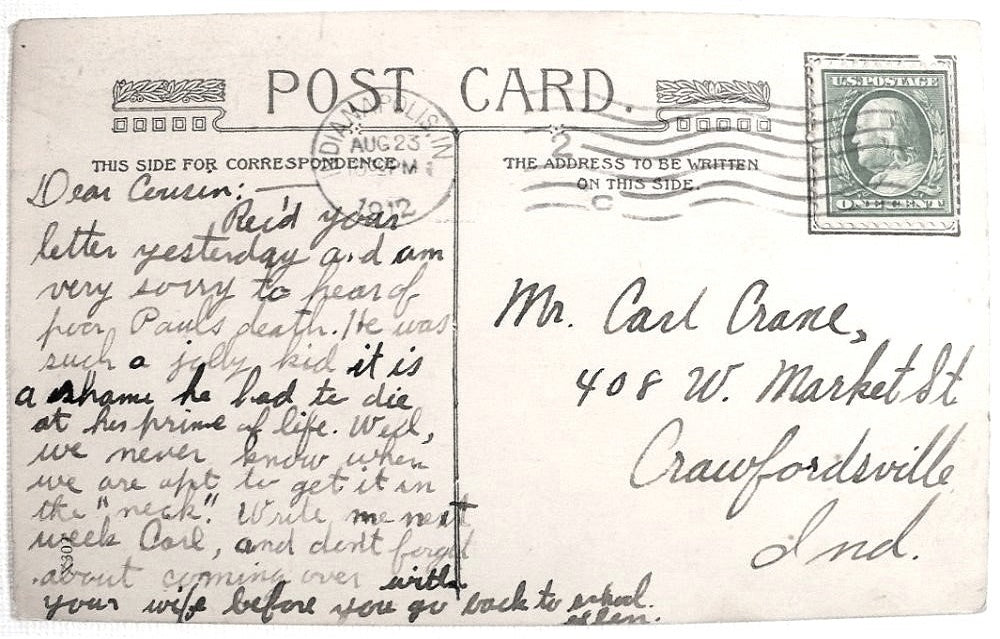 POST CARD.
INDIANAPOLIS, IN
AUG 23
PM
1912
2
C
U.S. POSTAGE
ONE CENT
THIS SIDE FOR CORRESPONDENCE.
THE ADDRESS TO BE WRITTEN
ON THIS SIDE.
Dear Cousin:
Rec'd your
letter yesterday and am
very sorry to hear of
poor Pauls death. He was
such a jolly kid it is
a shame he had to die
at his prime of life. Well,
we never know when
we are apt to get it in
the "neck". Write me next
week Carl, and don't forget
about coming over with
your wife before you go back to school.
X307
Mr. Carl Crane,
408 W. Market St
Crawfordsville
Ind.